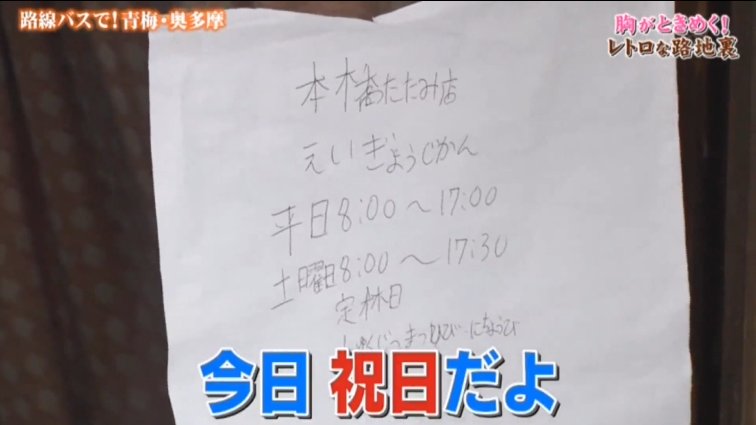 路線バスで!青梅・奥多摩
胸がときめく!
レトロな路地裏
本橋たたみ店
えいぎょうじかん
平日8:00~17:00
土曜日8:00~17:30
定休日
しゅくじつまつりひび・にちようび
今日 祝日だよ